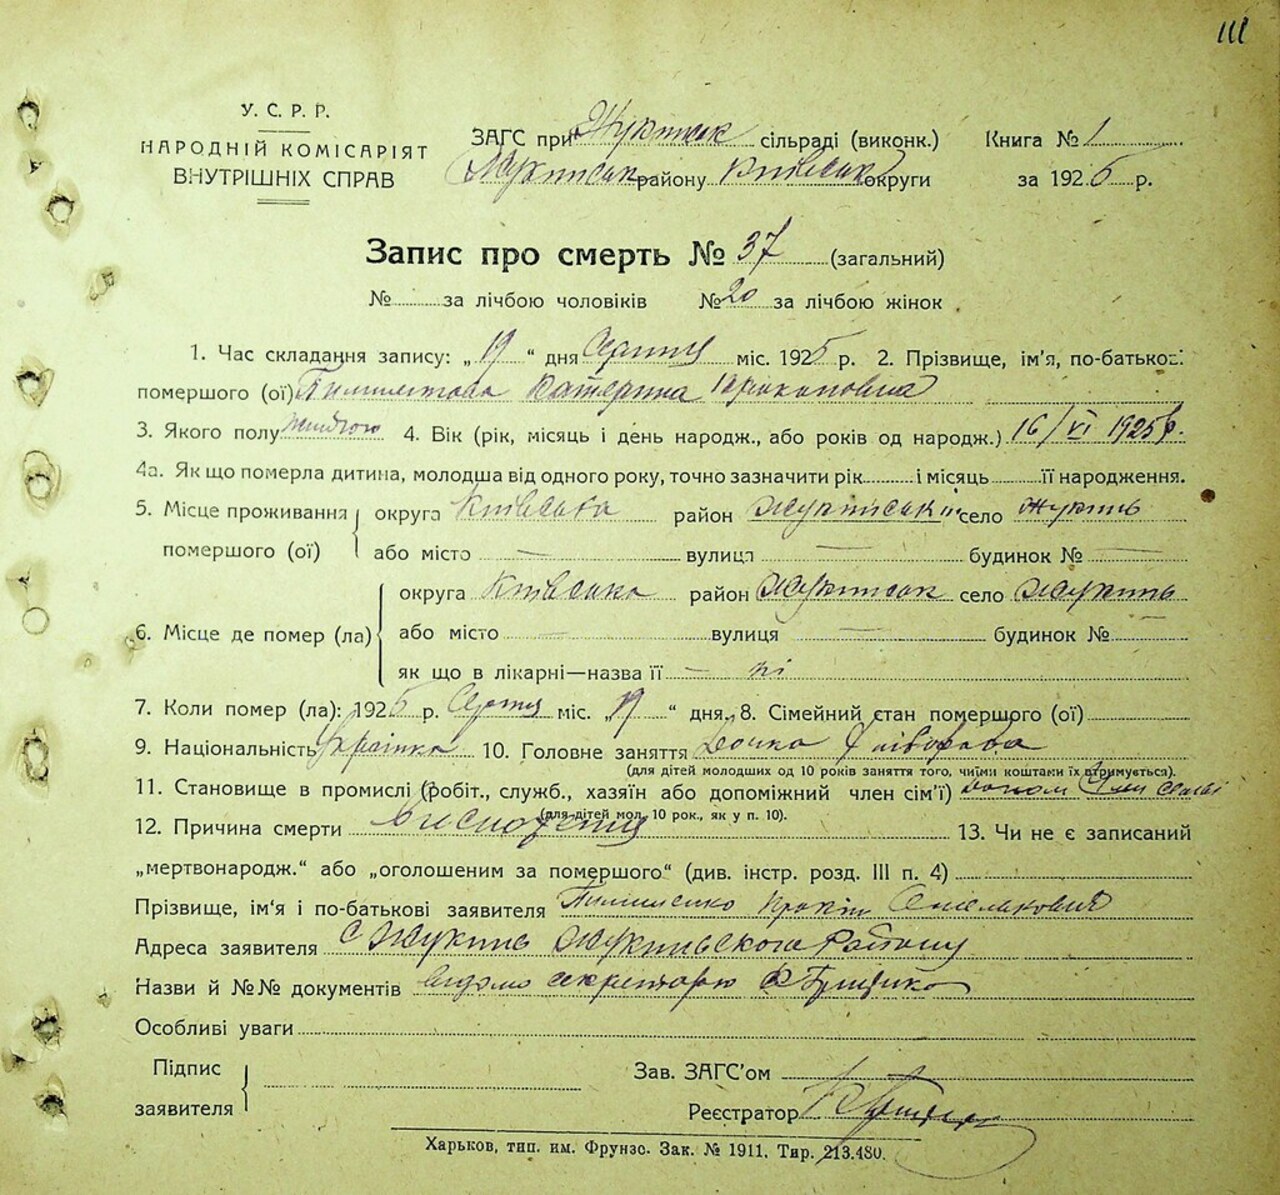 111
У. С. Р. Р.
НАРОДНІЙ КОМІСАРІЯТ
ВНУТРІШНІХ СПРАВ
ЗАГС при Жукинськ сільраді (виконк.)
Жукинськ району Київськ округи
Книга № 1
за 1925 р.
Запис про смерть № 37 (загальний)
№ за лічбою чоловіків № 20 за лічбою жінок
1. Час складання запису: „19“ дня Серпня міс. 1925 р. 2. Прізвище, ім'я, по-батькові
помершого (ої) Катерина Прокоповна
3. Якого полу жіночого 4. Вік (рік, місяць і день народж., або років од народж.) 16/VI 1925 р.
4а. Як що померла дитина, молодша від одного року, точно зазначити рік і місяць її народження.
5. Місце проживання помершого (ої) округа Київська район Жукинськ село Жукинь
або місто — вулиця — будинок № —
6. Місце де помер (ла) округа Київська район Жукинськ село Жукинь
або місто — вулиця — будинок № —
як що в лікарні—назва її — ні
7. Коли помер (ла): 1925 р. Серпня міс. „19“ дня. 8. Сімейний стан помершого (ої)
9. Національність Українка 10. Головне заняття Дочка Хлібороба
(для дітей молодших од 10 років заняття того, чиїми коштами їх втримується).
11. Становище в промислі (робіт., служб., хазяїн або допоміжний член сім'ї) допом член семьі
(для дітей мол. 10 рок., як у п. 10).
12. Причина смерти 13. Чи не є записаний
„мертвонародж.“ або „оголошеним за помершого“ (див. інстр. розд. III п. 4)
Прізвище, ім'я і по-батькові заявителя Пилипенко Прокіп
Адреса заявителя с Жукинь Жукинського Району
Назви й №№ документів відомо секретарю
Особливі уваги
Підпис заявителя
Зав. ЗАГС'ом
Реєстратор
Харьков, тип. им. Фрунзе. Зак. № 1911. Тир. 213.480.